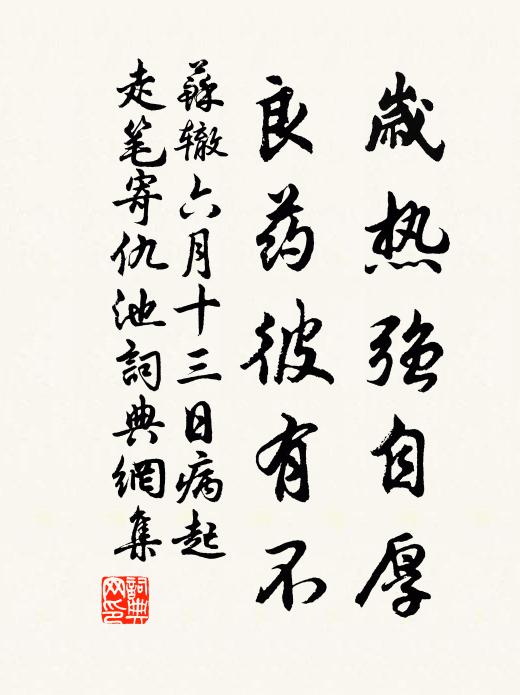 歲热强自厚
良药彼有不
蘇辙六月十三日病起
走笔寄仇池詞典網集
詞典
网印